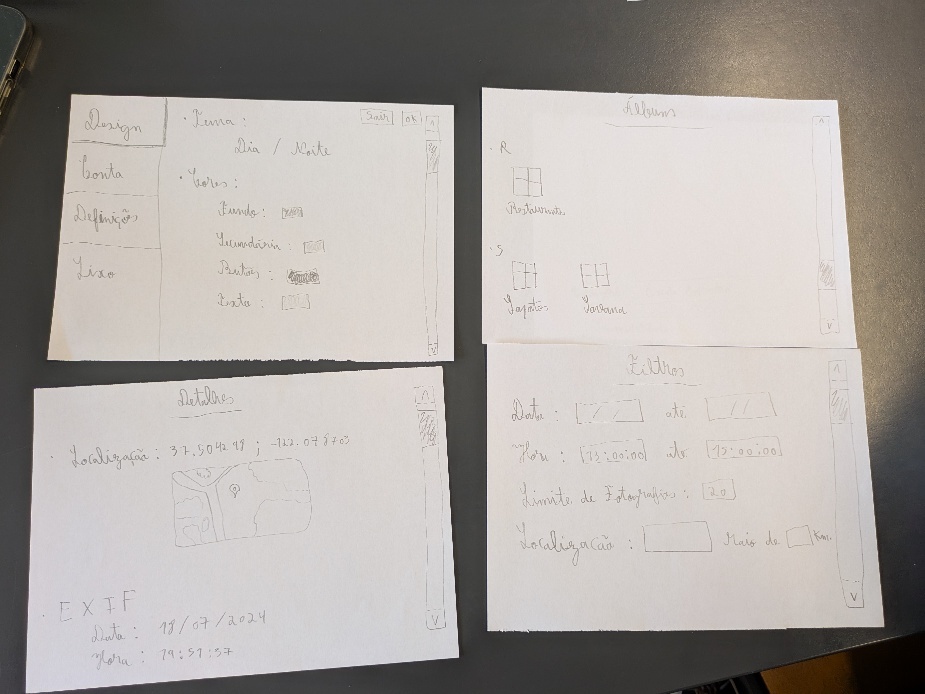 Design
Conta
Definições
Lixo
• Tema :
Sair
OK
Dia / Noite
• Cores :
Fundo :
Secundária :
Butões :
Texto :
Álbuns
• R
Restaurante
• S
Sapatos
Savana
Detalhes
• Localização : 37.504298 ; -122.078703
• EXIF
Data : 18/07/2024
Hora : 19:51:37
Filtros
Data : / / até / /
Hora : 15:00:00 até 15:00:00
Limite de Fotografias : 20
Localização : Raio de Km